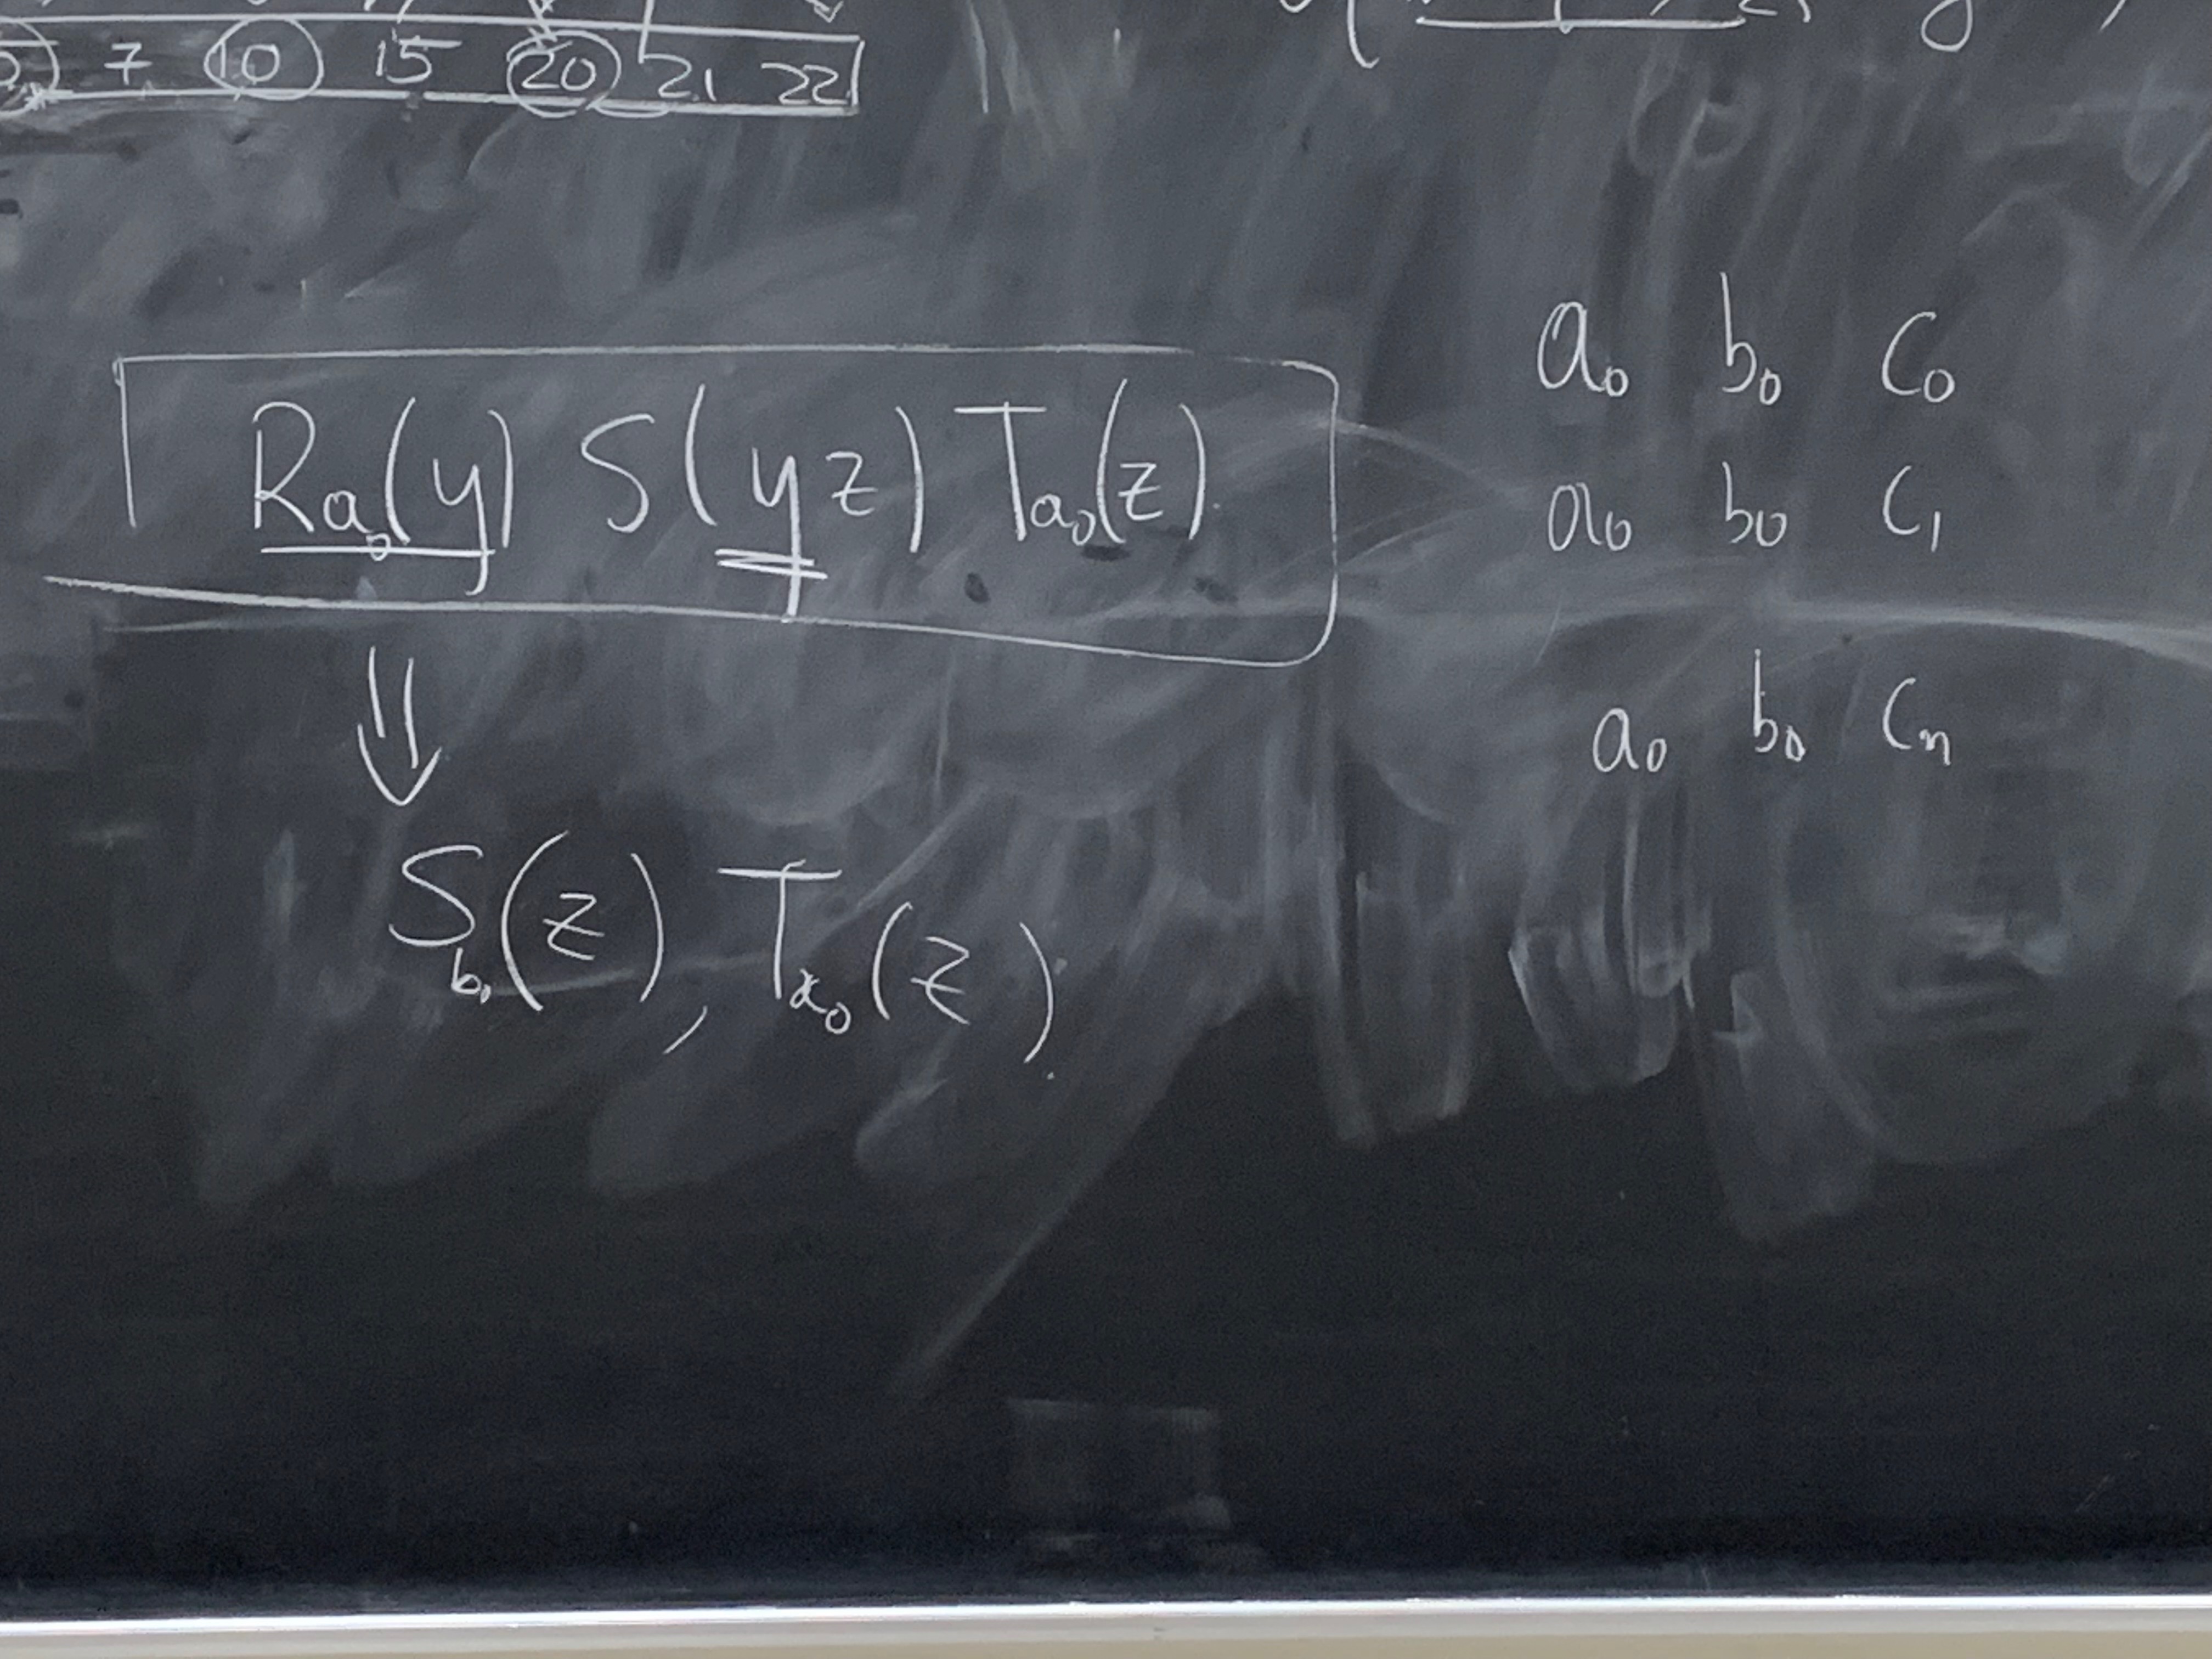 7 10 15 20 21 22
R_{a_0}(y) S(yz) T_{a_0}(z)
S_{b_0}(z), T_{a_0}(z)
a_0 b_0 c_0
a_0 b_0 c_1
a_0 b_0 c_n